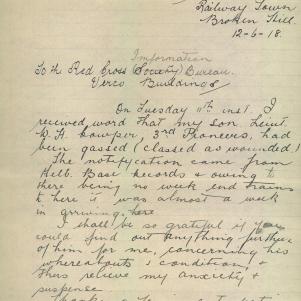 Railway Town
Broken Hill.
12-6-18.
Information
To the Red Cross (Society) Bureau.
Verco Buildings
On Tuesday 11th inst. I
received word that my son Lieut.
Cowper, 3rd Pioneers, had
been gassed (classed as wounded)
The notification came from
Melb. Base Records & owing to
there being no week end trains
to here it was almost a week
in arriving here
I shall be so grateful if you
could find out anything further
of him for me, concerning his
whereabouts & condition, &
thus relieve my anxiety &
suspense